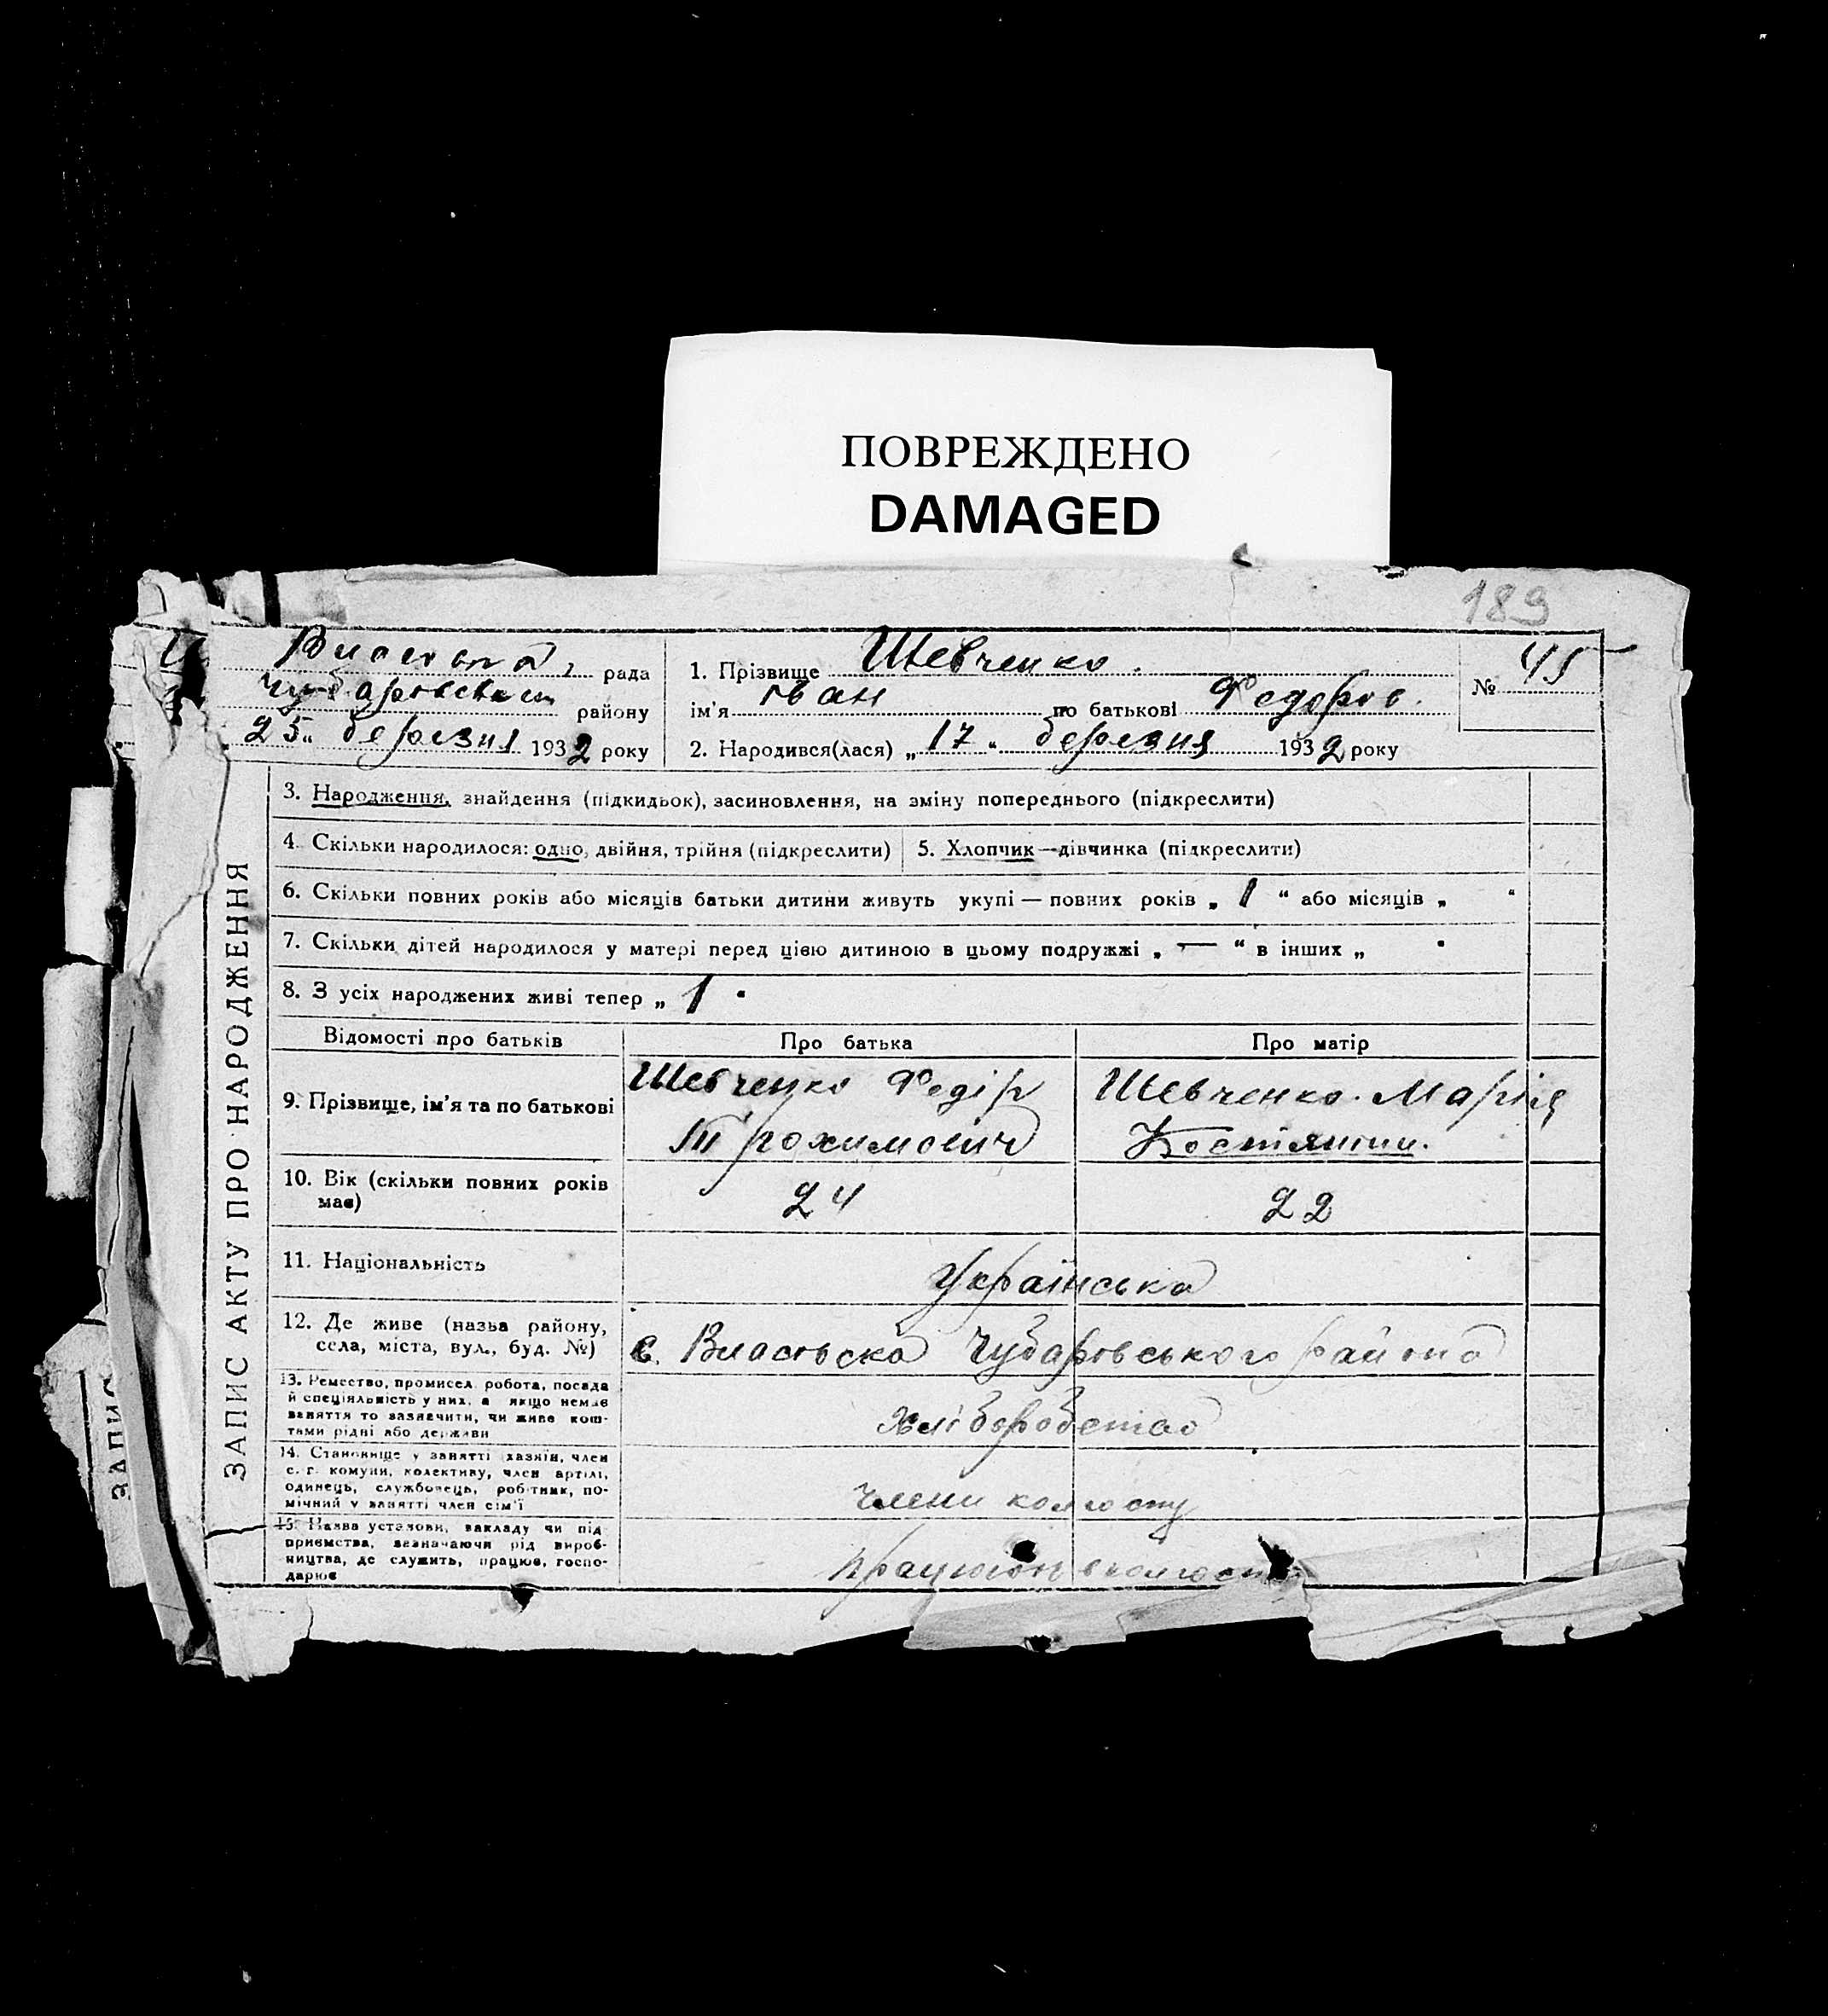 ПОВРЕЖДЕНО
DAMAGED
189
рада
Чубаровськ району
25 „ березня 1932 року
1. Прізвище Шевченко.
ім'я Іван по батькові Федоров.
2. Народився(лася) „ 17 “ березня 1932 року
№ 45
ЗАПИС АКТУ ПРО НАРОДЖЕННЯ
3. Народження, знайдення (підкидьок), засиновлення, на зміну попереднього (підкреслити)
4. Скільки народилося: одно, двійня, трійня (підкреслити)
5. Хлопчик—дівчинка (підкреслити)
6. Скільки повних років або місяців батьки дитини живуть укупі — повних років „ 1 “ або місяців „ “
7. Скільки дітей народилося у матері перед цією дитиною в цьому подружжі „ — “ в інших „ “
8. З усіх народжених живі тепер „ 1 “
Відомості про батьків Про батька Про матір
9. Прізвище, ім'я та по батькові
Шевченко Федір
Трохимович
Шевченко. Марія
Костянтин.
10. Вік (скільки повних років
має)
24 22
11. Національність
Українська
12. Де живе (назва району,
села, міста, вул., буд. №)
с. Власівска Чубаровського района
13. Ремество, промисел, робота, посада
й спеціяльність у них, а якщо немає
заняття то зазначити, чи живе кош-
тами рідні або держави
хліборобство
14. Становище у занятті хазяїн, член
с. г. комуни, колективу, член артілі,
одинець, службовець, робітник, по-
мічний у занятті член сім'ї
члени колгоспу
15. Назва установи, закладу чи під
приємства, зазначаючи рід вироб-
ництва, де служить, працює, госпо-
дарює
ЗАПИС